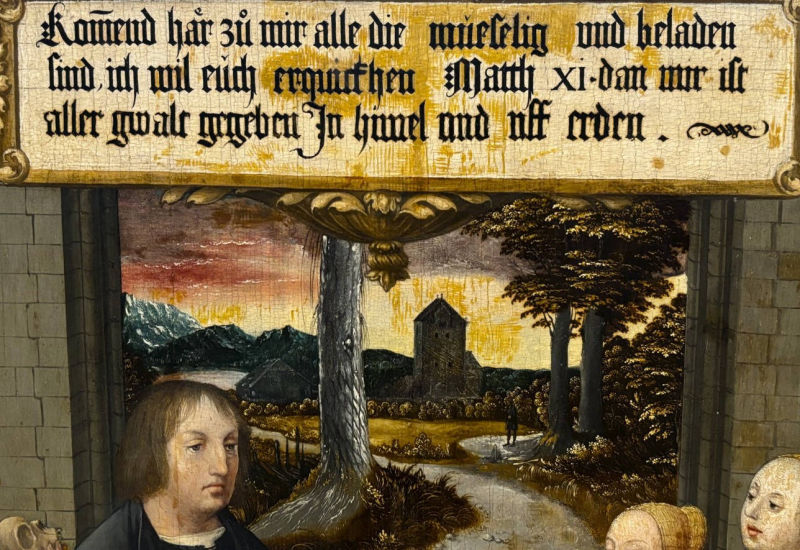 Kom̄end här zů mir alle die müeselig vnd beladen
sind, ich wil eüch erquickhen Matth XI · dan mir ist
aller gwalt gegeben In himel vnd vff erden .